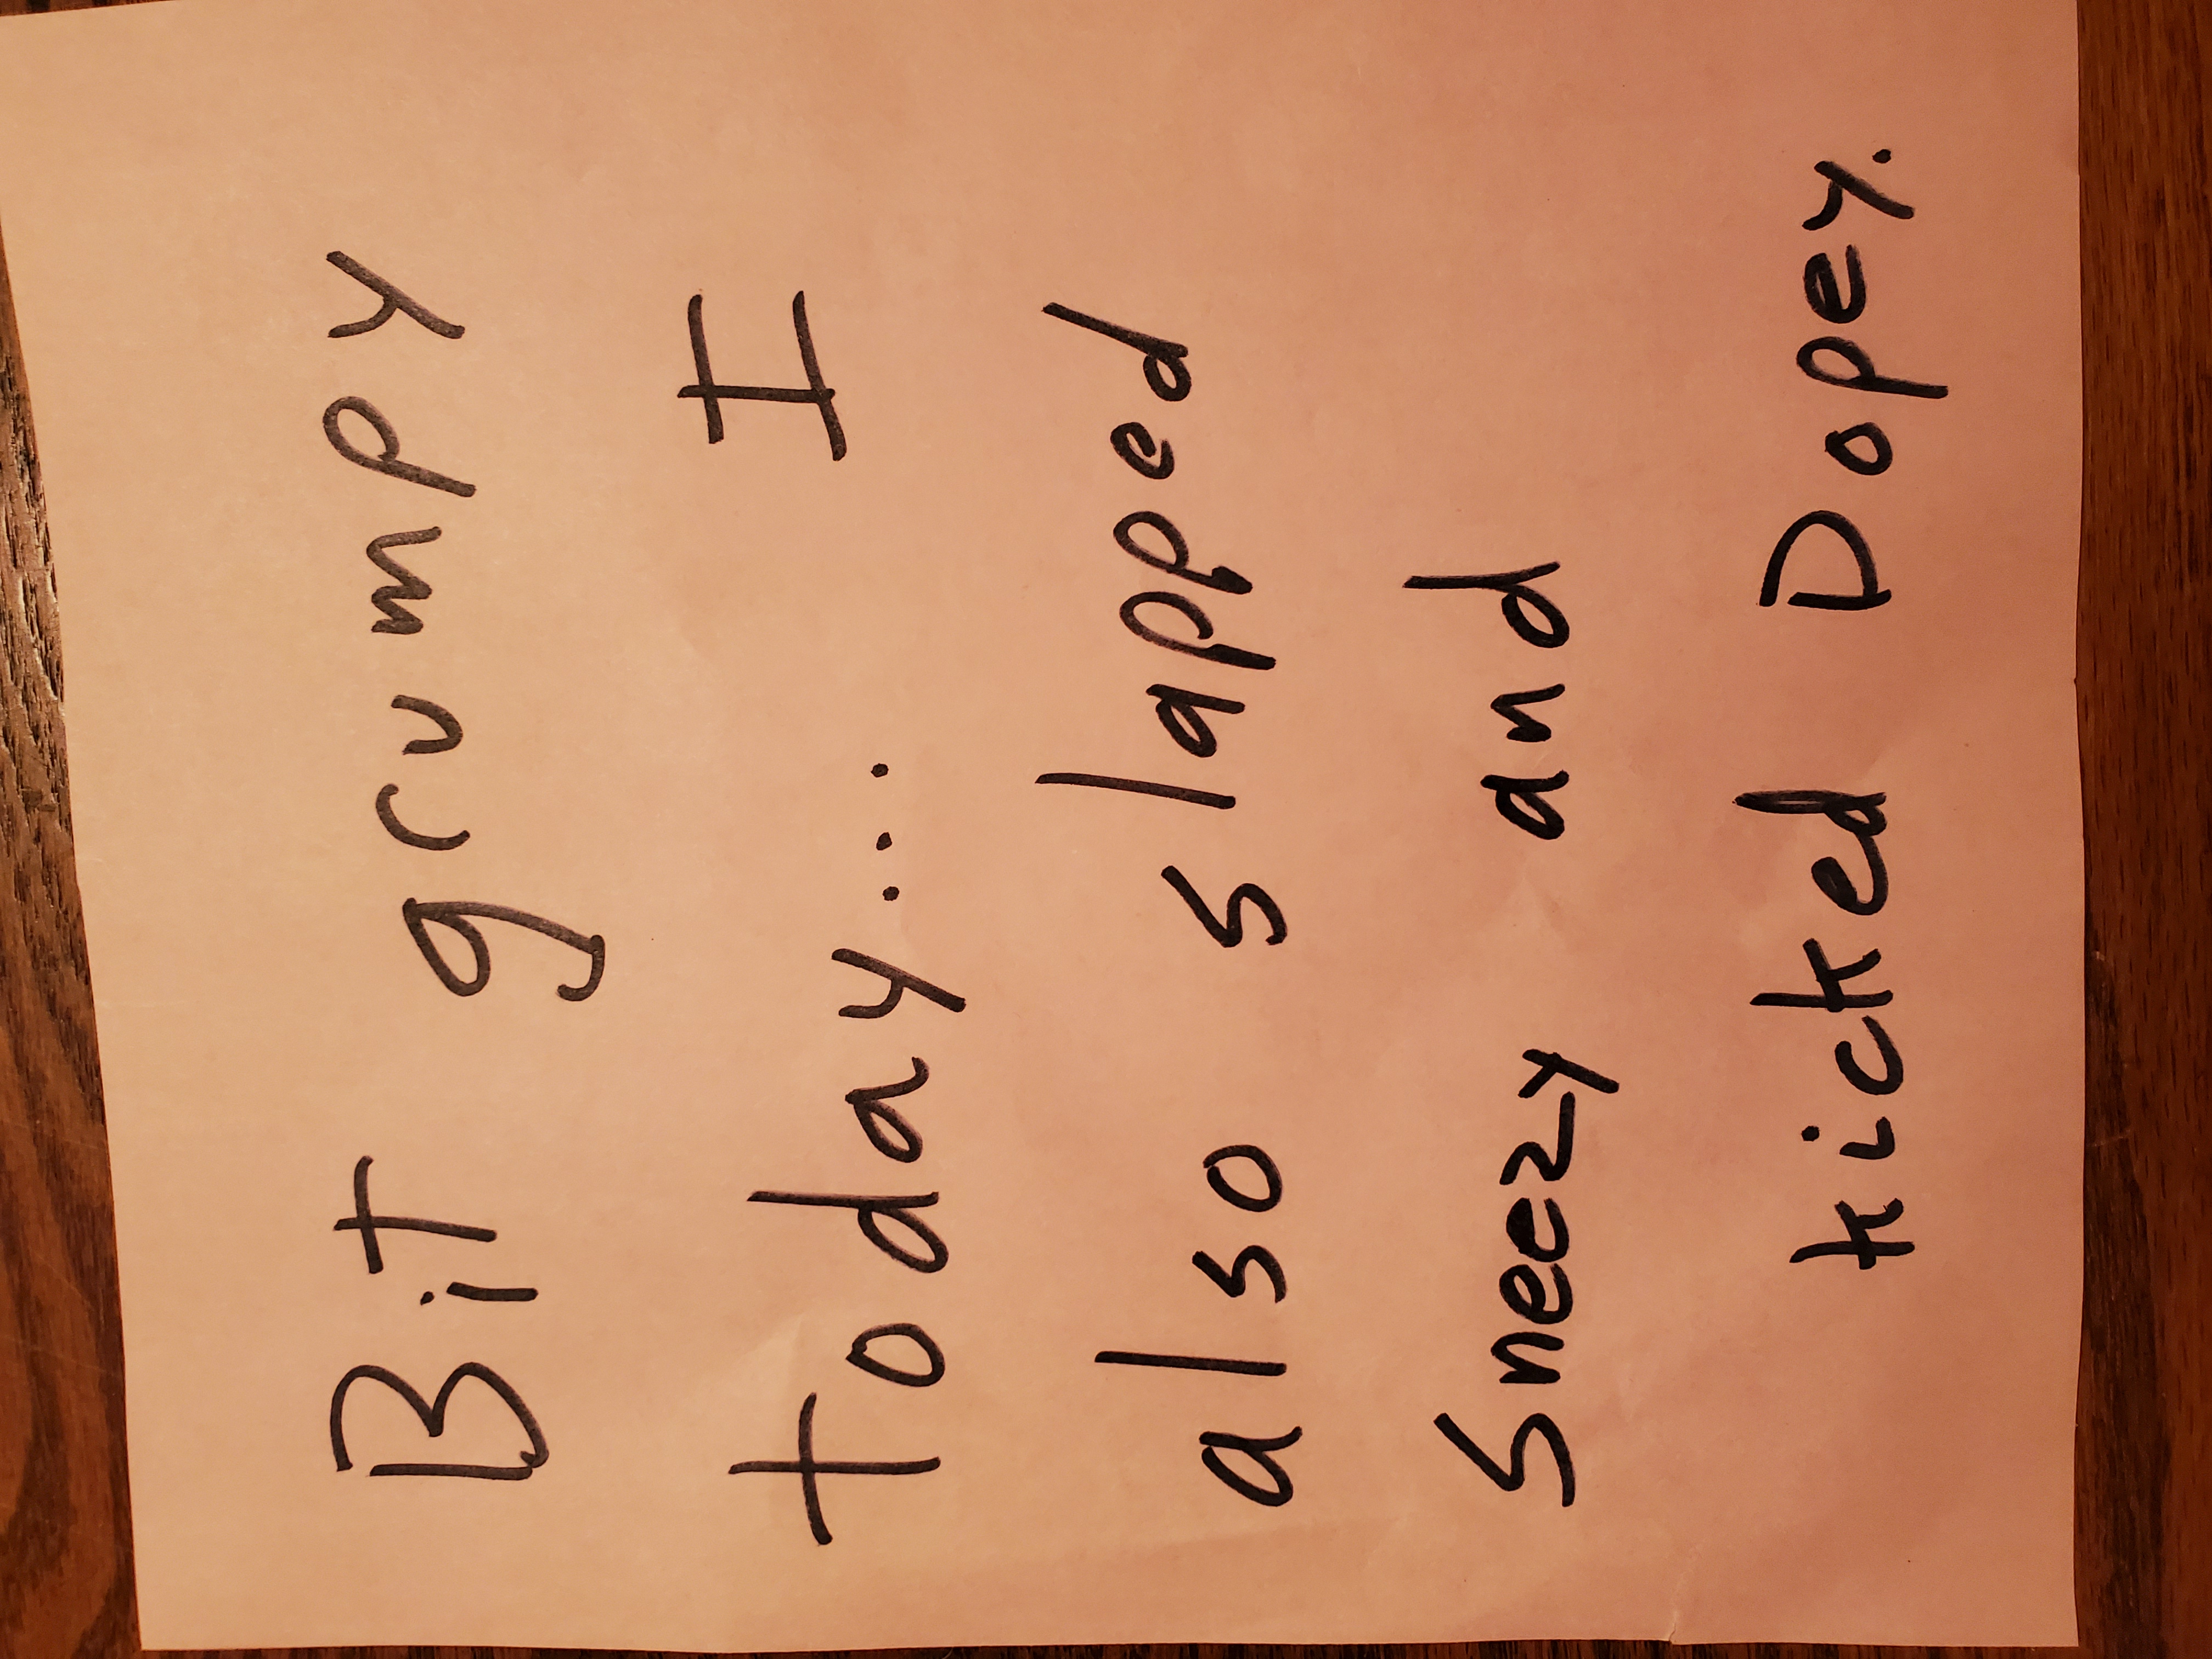 Bit grumpy
today... I
also slapped
Sneezy and
kicked Dopey.